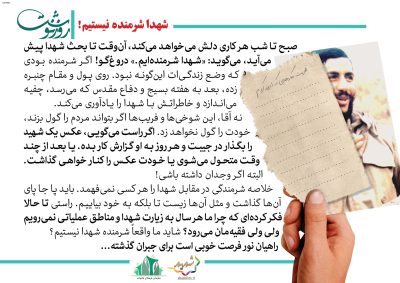 روزنوشت
شهدا شرمنده نیستیم!
صبح تا شب هر کاری دلش می‌خواهد می‌کند، آن‌وقت تا بحث شهدا پیش
می‌آید، می‌گوید: «شهدا شرمنده‌ایم.» دروغ‌گو! اگر شرمنده بودی
که وضع زندگی‌ات این‌گونه نبود. روی پول و مقام چنبره
زده، بعد به هفته بسیج و دفاع مقدس که می‌رسد، چفیه
می‌اندازد و خاطراتش با شهدا را یادآوری می‌کند.
نه آقا، این شوخی‌ها و فریب‌ها اگر بتواند مردم را گول بزند،
خودت را گول نخواهد زد. اگر راست می‌گویی، عکس یک شهید
را بگذار در جیبت و هر روز به او گزارش کار بده. یا بعد از چند
وقت متحول می‌شوی یا خودت عکس را کنار خواهی گذاشت.
البته اگر وجدان داشته باشی!
خلاصه شرمندگی در مقابل شهدا را هر کسی نمی‌فهمد. باید پا جا پای
آن‌ها گذاشت و مثل آن‌ها زیست تا بلکه به خود بیاییم. راستی تا حالا
فکر کرده‌ای که چرا ما هر سال به زیارت شهدا و مناطق عملیاتی نمی‌رویم
ولی ولی فقیه‌مان می‌رود؟ شاید ما واقعاً شرمنده شهدا نیستیم؟
راهیان نور فرصت خوبی است برای جبران گذشته...